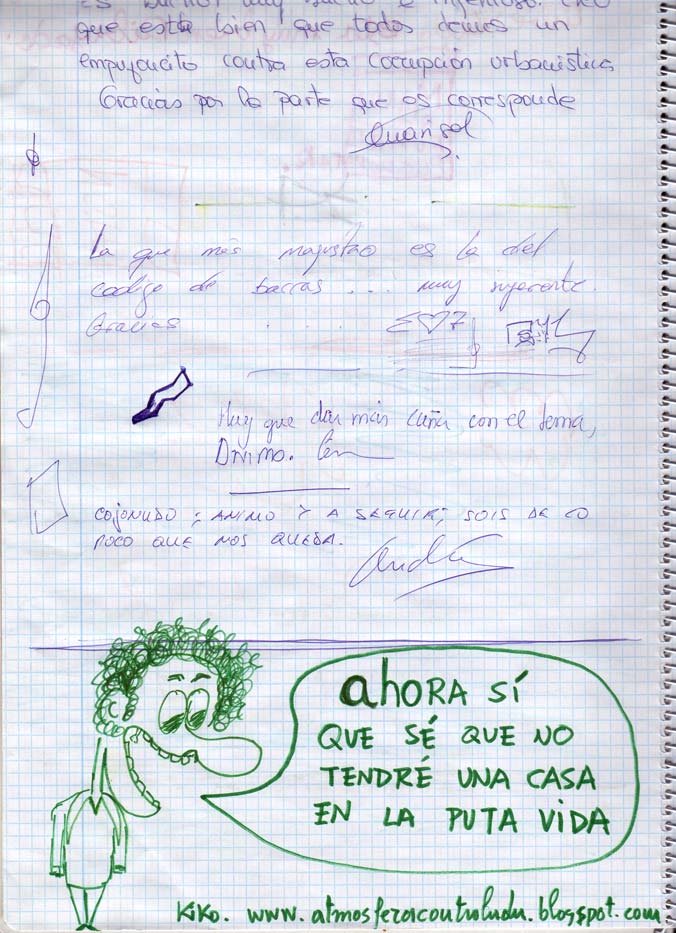 es bueno, muy bueno e ingenioso. Creo
que está bien que todos demos un
empujoncito contra esta corrupción urbanística
Gracias por la parte que os corresponde
La que más me gustao es la del
codigo de barras ... muy sugerente.
Gracias . . . .
Hay que dar más caña con el tema,
Animo.
COJONUDO ; ANIMO Y A SEGUIR; SOIS DE LO
POCO QUE NOS QUEDA.
ahORA SÍ
QUE SÉ QUE NO
TENDRÉ UNA CASA
EN LA PUTA VIDA
KiKo. www.atmosferacontroludu.blogspot.com